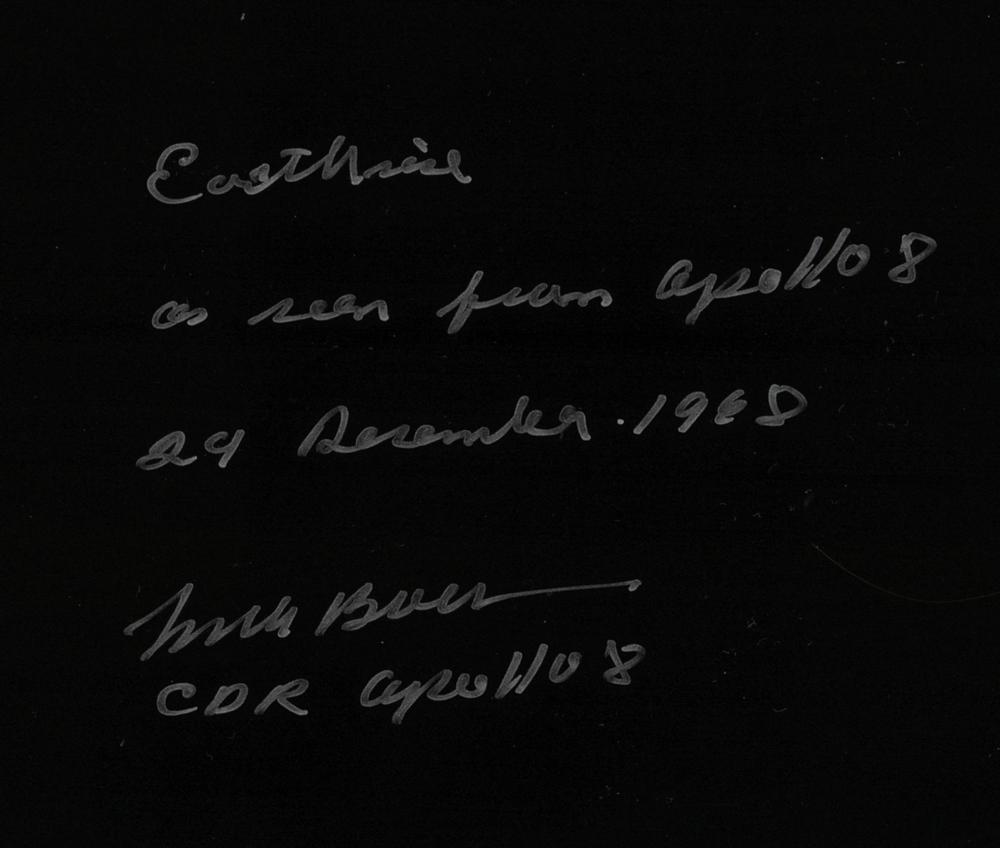 Earthrise
as seen from Apollo 8
24 December. 1968
Frank Borman
CDR Apollo 8